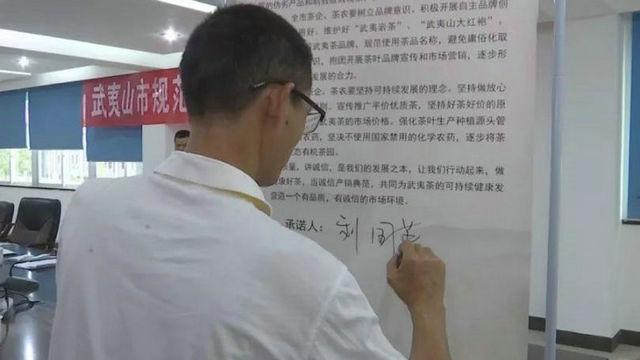 的伪劣产品和
全市茶企、茶农要树立品牌意识。积极开展自主品牌创
用好、维护好“武夷岩茶”、“武夷山大红袍”、
武夷茶品牌，规范使用茶品名称，避免庸俗化取
识，抱团开展茶叶品牌宣传和市场营销，逐步形
发展的合力。
企、茶农要坚持可持续发展的理念。坚持做放心
制，宣传推广平价优质茶，坚持好茶好价的原
武夷茶的市场价格。强化茶叶生产种植源头管
农药，坚决不使用国家禁用的化学农药，逐步将茶
态有机茶园。
质量，讲诚信，是我们的发展之本，让我们行动起来，做
康好茶，当诚信产销典范，共同为武夷茶的可持续健康发
营造一个有品质，有诚信的市场环境。
承诺人：刘国英
武夷山市规范